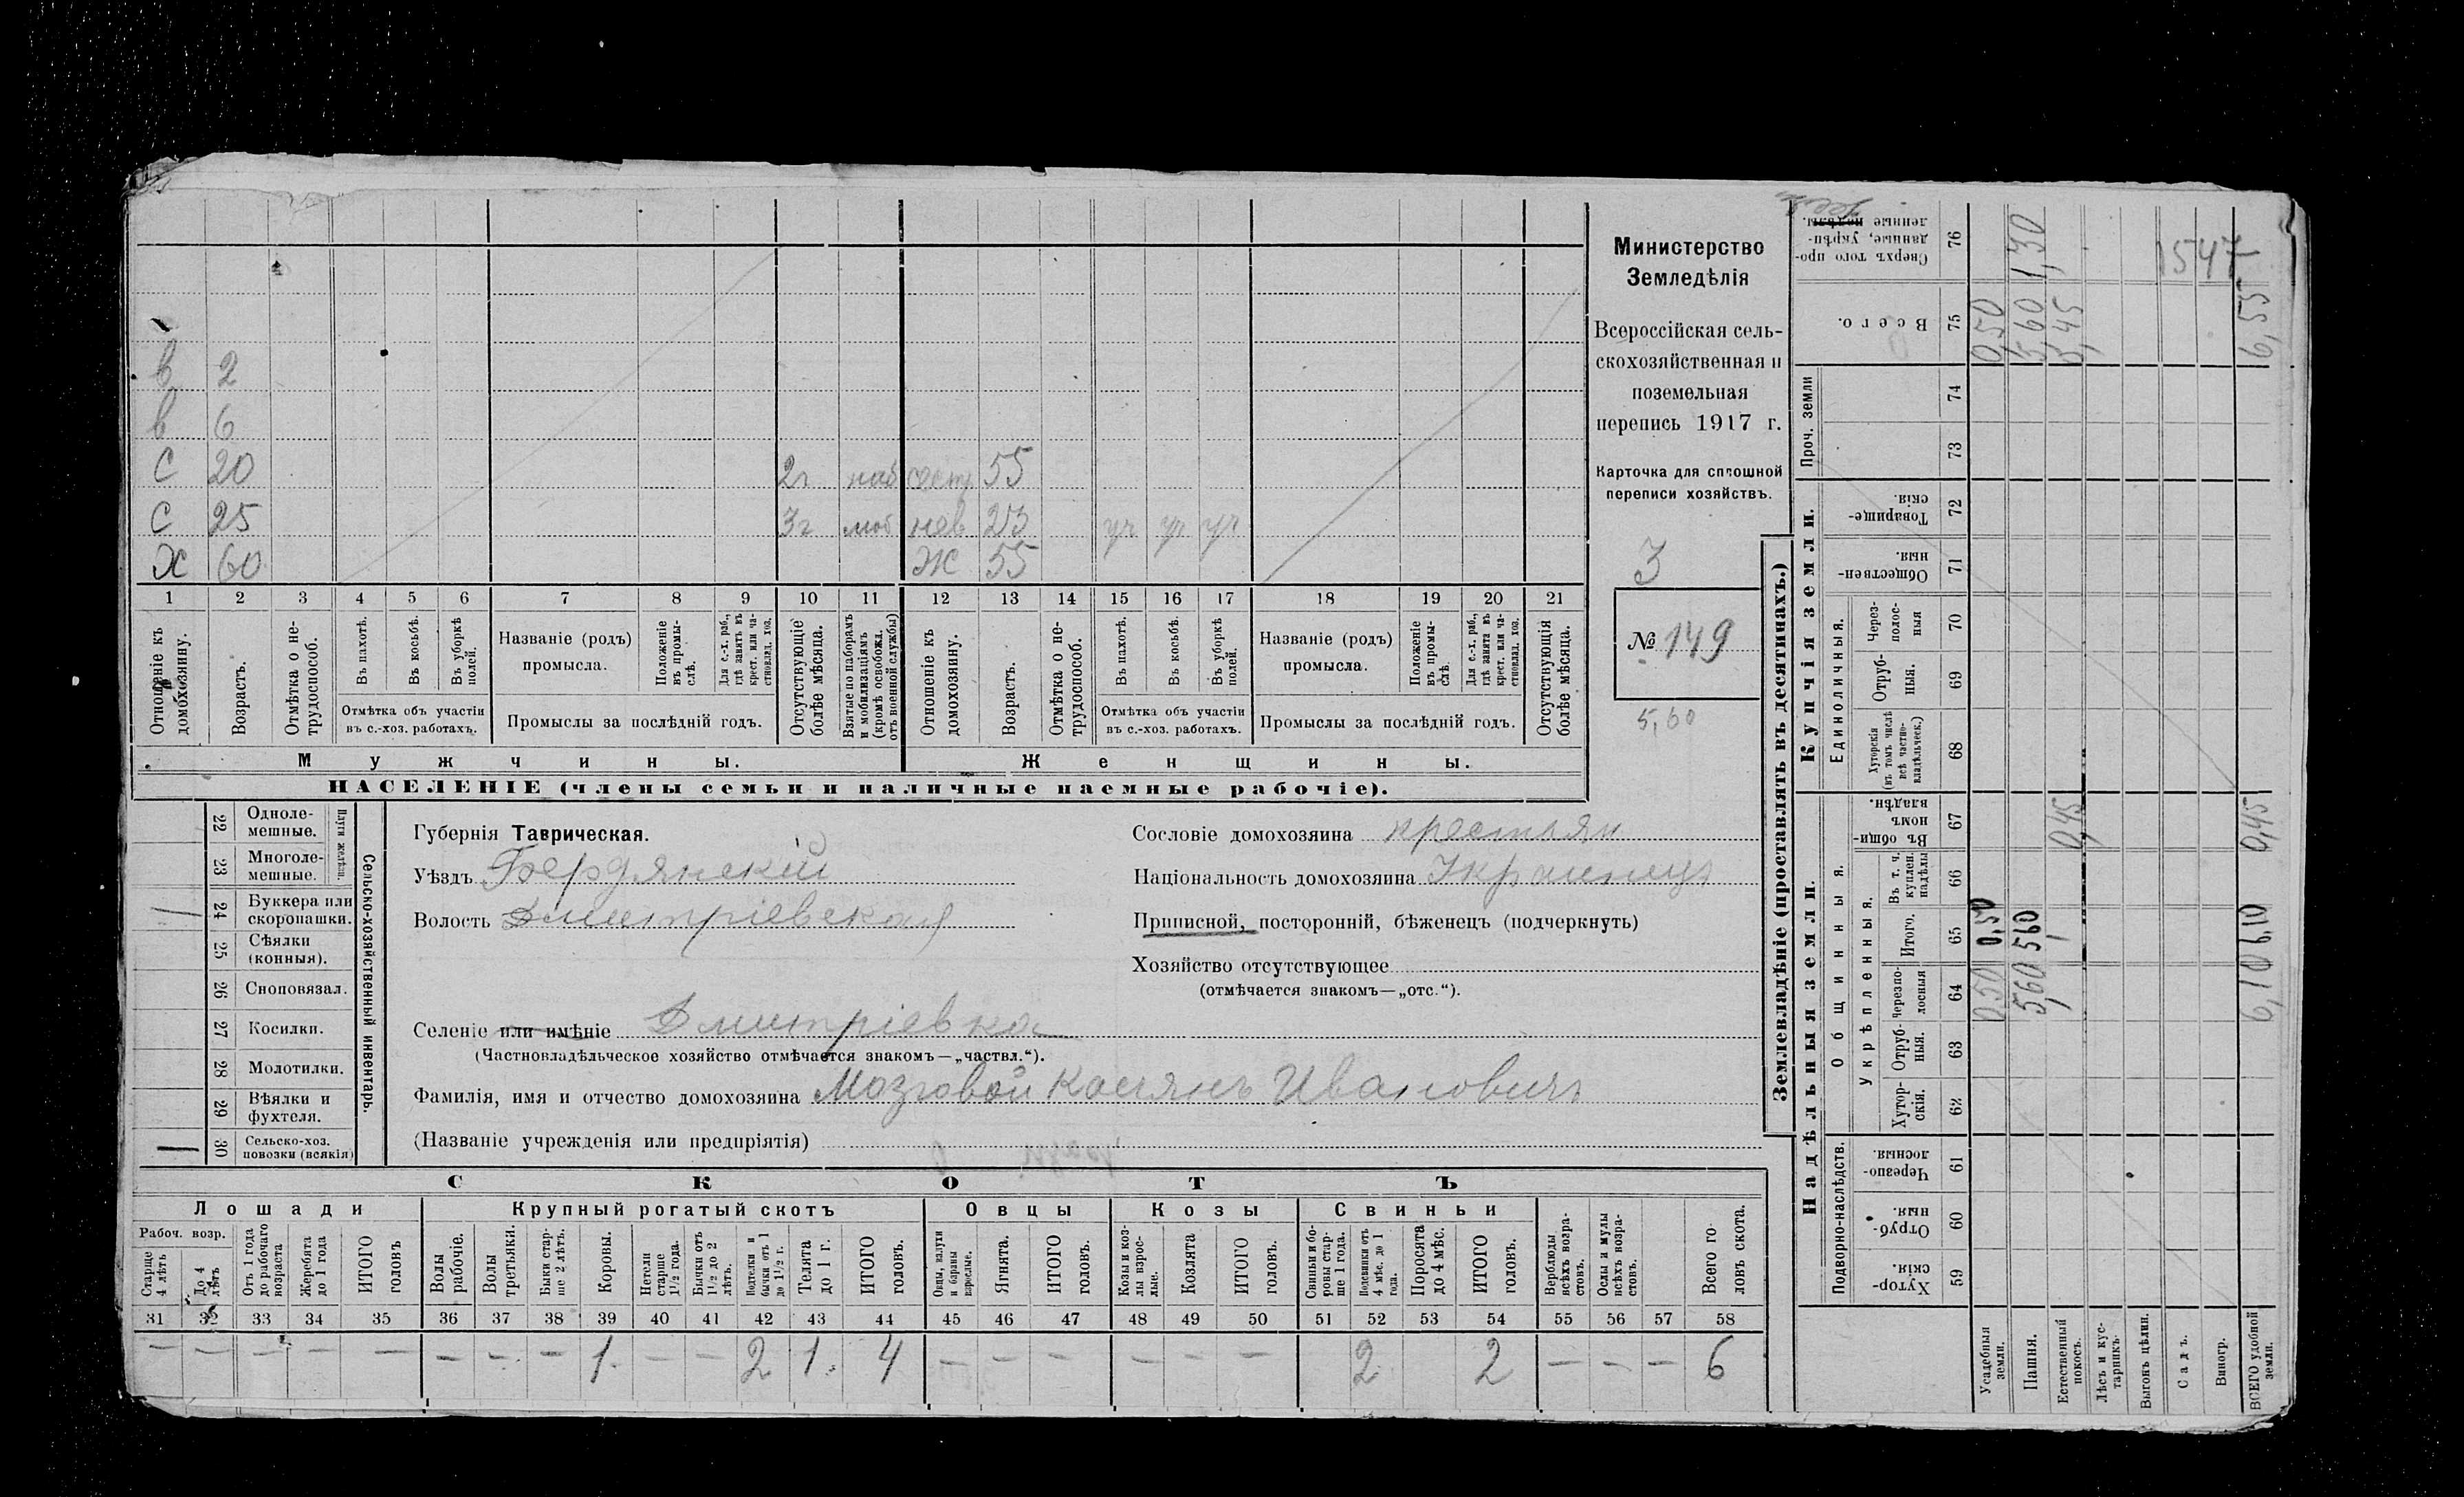 Министерство
Земледѣлія
Всероссійская сель-
скохозяйственная и
поземельная
перепись 1917 г.
Карточка для сплошной
переписи хозяйствъ.
3
№ 149
5,60
в 2
в 6
С 20 2г наб сест 55
С 25 3г моб нев 23 уч уч уч
Х 60 Ж 55
1 2 3 4 5 6 7 8 9 10 11 12 13 14 15 16 17 18 19 20 21
Отношеніе къ домохозяину.
Возрастъ.
Отмѣтка о не-трудоспособ.
Въ пахотѣ.
Въ косьбѣ.
Въ уборкѣ полей.
Отмѣтка объ участіи
въ с.-хоз. работахъ.
Названіе (родъ)
промысла.
Положеніе въ промы-слѣ.
Для с.-х. раб., гдѣ занятъ въ крест. или ча-стновлад. хоз.
Промыслы за послѣдній годъ.
Отсутствующіе болѣе мѣсяца.
Взятые по наборамъ и мобилизаціямъ (кромѣ освобожд. отъ военной службы)
Отношеніе къ домохозяину.
Возрастъ.
Отмѣтка о не-трудоспособ.
Въ пахотѣ.
Въ косьбѣ.
Въ уборкѣ полей.
Отмѣтка объ участіи
въ с.-хоз. работахъ.
Названіе (родъ)
промысла.
Положеніе въ промы-слѣ.
Для с.-х. раб., гдѣ занята въ крест. или ча-стновлад. хоз.
Промыслы за послѣдній годъ.
Отсутствующія болѣе мѣсяца.
Мужчины. Женщины.
НАСЕЛЕНІЕ (члены семьи и наличные наемные рабочіе).
22 Одноле-мешные.
23 Многоле-мешные.
Плуги желѣзн.
24 Буккера или скоропашки.
25 Сѣялки (конныя).
26 Сноповязал.
27 Косилки.
28 Молотилки.
29 Вѣялки и фухтеля.
30 Сельско-хоз. повозки (всякія)
Сельско-хозяйственный инвентарь.
Губернія Таврическая.
Уѣздъ Бердянскій
Волость Дмитріевская
Селеніе или имѣніе Дмитріевка
(Частновладѣльческое хозяйство отмѣчается знакомъ—„частвл.“).
Фамилія, имя и отчество домохозяина Мозговой Касіянъ Ивановичъ
(Названіе учрежденія или предпріятія)
Сословіе домохозяина крестьян
Національность домохозяина Украинецъ
Приписной, посторонній, бѣженецъ (подчеркнуть)
Хозяйство отсутствующее
(отмѣчается знакомъ—„отс.“).
СКОТЪ
Лошади Крупный рогатый скотъ Овцы Козы Свиньи
Рабоч. возр.
Старше 4 лѣтъ
До 4 лѣтъ
Отъ 1 года до рабочаго возраста
Жеребята до 1 года
ИТОГО головъ
Волы рабочіе.
Волы третьяки.
Быки стар-ше 2 лѣтъ.
Коровы.
Нетели старше 1½ года.
Бычки отъ 1½ до 2 лѣтъ.
Подтелки и бычки отъ 1 до 1½ г.
Телята до 1 г.
ИТОГО головъ.
Овцы, валухи и бараны взрослые.
Ягнята.
ИТОГО головъ.
Козы и коз-лы взрос-лые.
Козлята
ИТОГО головъ.
Свиньи и бо-ровы стар-ше 1 года.
Подсвинки отъ 4 мѣс. до 1 года.
Поросята до 4 мѣс.
ИТОГО головъ.
Верблюды всѣхъ возра-стовъ.
Ослы и мулы всѣхъ возра-стовъ.
Всего го-ловъ скота.
31 32 33 34 35 36 37 38 39 40 41 42 43 44 45 46 47 48 49 50 51 52 53 54 55 56 57 58
— — — — — — — — 1 — — 2 1 4 — — — — — — 2 2 — — — 6
Землевладѣніе (проставлять въ десятинахъ.)
Надѣльныя земли. Купчія земли. Проч. земли
Подворно-наслѣдств. Общинныя. Единоличныя.
Укрѣпленныя.
Хутор-скія. 59
Отруб-ныя. 60
Черезпо-лосныя. 61
Хутор-скія. 62
Отруб-ныя. 63
Черезпо-лосныя 64
Итого. 65
Въ т. ч. куплен. надѣлы 66
Въ общи-номъ владѣн. 67
Хуторскія (въ томъ числѣ всѣ частно-владѣльческ.) 68
Отруб-ныя. 69
Через-полос-ныя 70
Обществен-ныя. 71
Товарище-скія. 72
73
74
Всего. 75
Сверхъ того про-данные, укрѣп-ленные надѣлы. 76
Усадебныя земли. 0,50 0,50 0,50
Пашня. 5,60 5,60 5,60 1,30
Естественный покосъ. 0,45
Лѣсъ и кус-тарникъ.
Выгонъ цѣлин.
Садъ.
Виногр.
ВСЕГО удобной земли. 6,10 6,10 0,45 6,55
1547